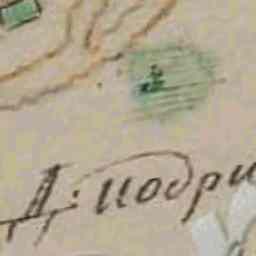 Д: подри